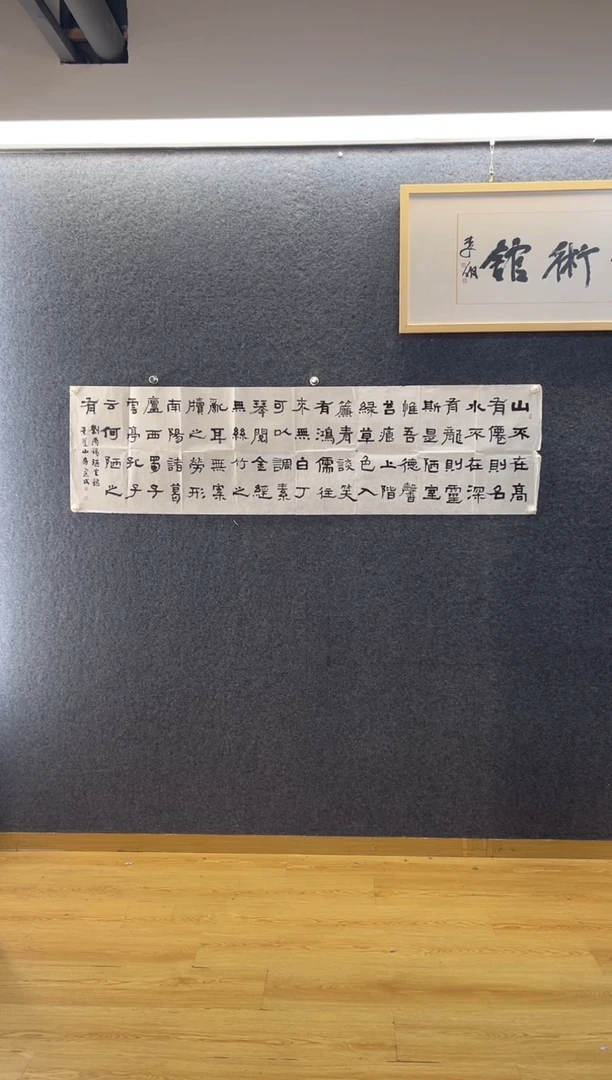 術館
山不在高
有僊則名
水不在深
有龍則靈
斯是陋室
惟吾德馨
苔痕上階
綠草色入
簾青談笑
有鴻儒往
來無白丁
可以調素
琴閱金經
無絲竹之
亂耳無案
牘之勞形
南陽諸葛
廬西蜀子
雲亭孔子
云何陋之
有
劉禹錫陋室銘